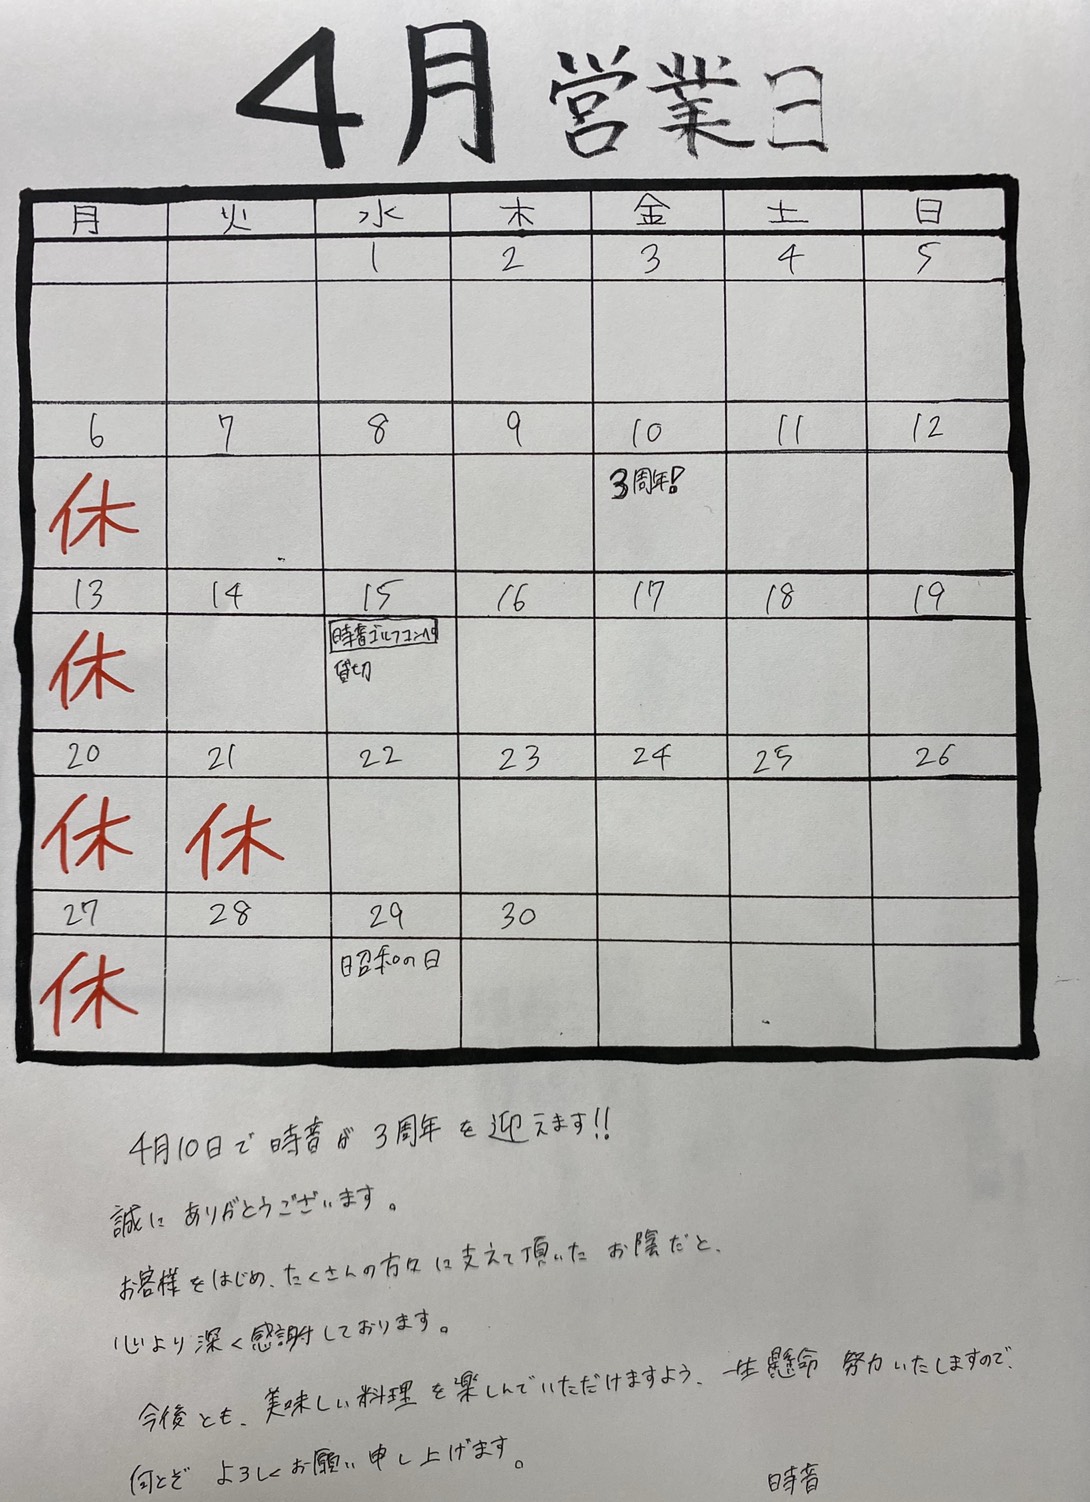 4月 営業日
月 火 水 木 金 土 日
1 2 3 4 5
6 7 8 9 10 11 12
休 3周年!
13 14 15 16 17 18 19
休 時音ゴルフコンペ
貸切
20 21 22 23 24 25 26
休 休
27 28 29 30
休 昭和の日
4月10日で時音が3周年を迎えます!!
誠にありがとうございます。
お客様をはじめ、たくさんの方々に支えて頂いたお陰だと、
心より深く感謝しております。
今後とも、美味しい料理を楽しんでいただけますよう、一生懸命 努力いたしますので、
何とぞ よろしくお願い申し上げます。
時音